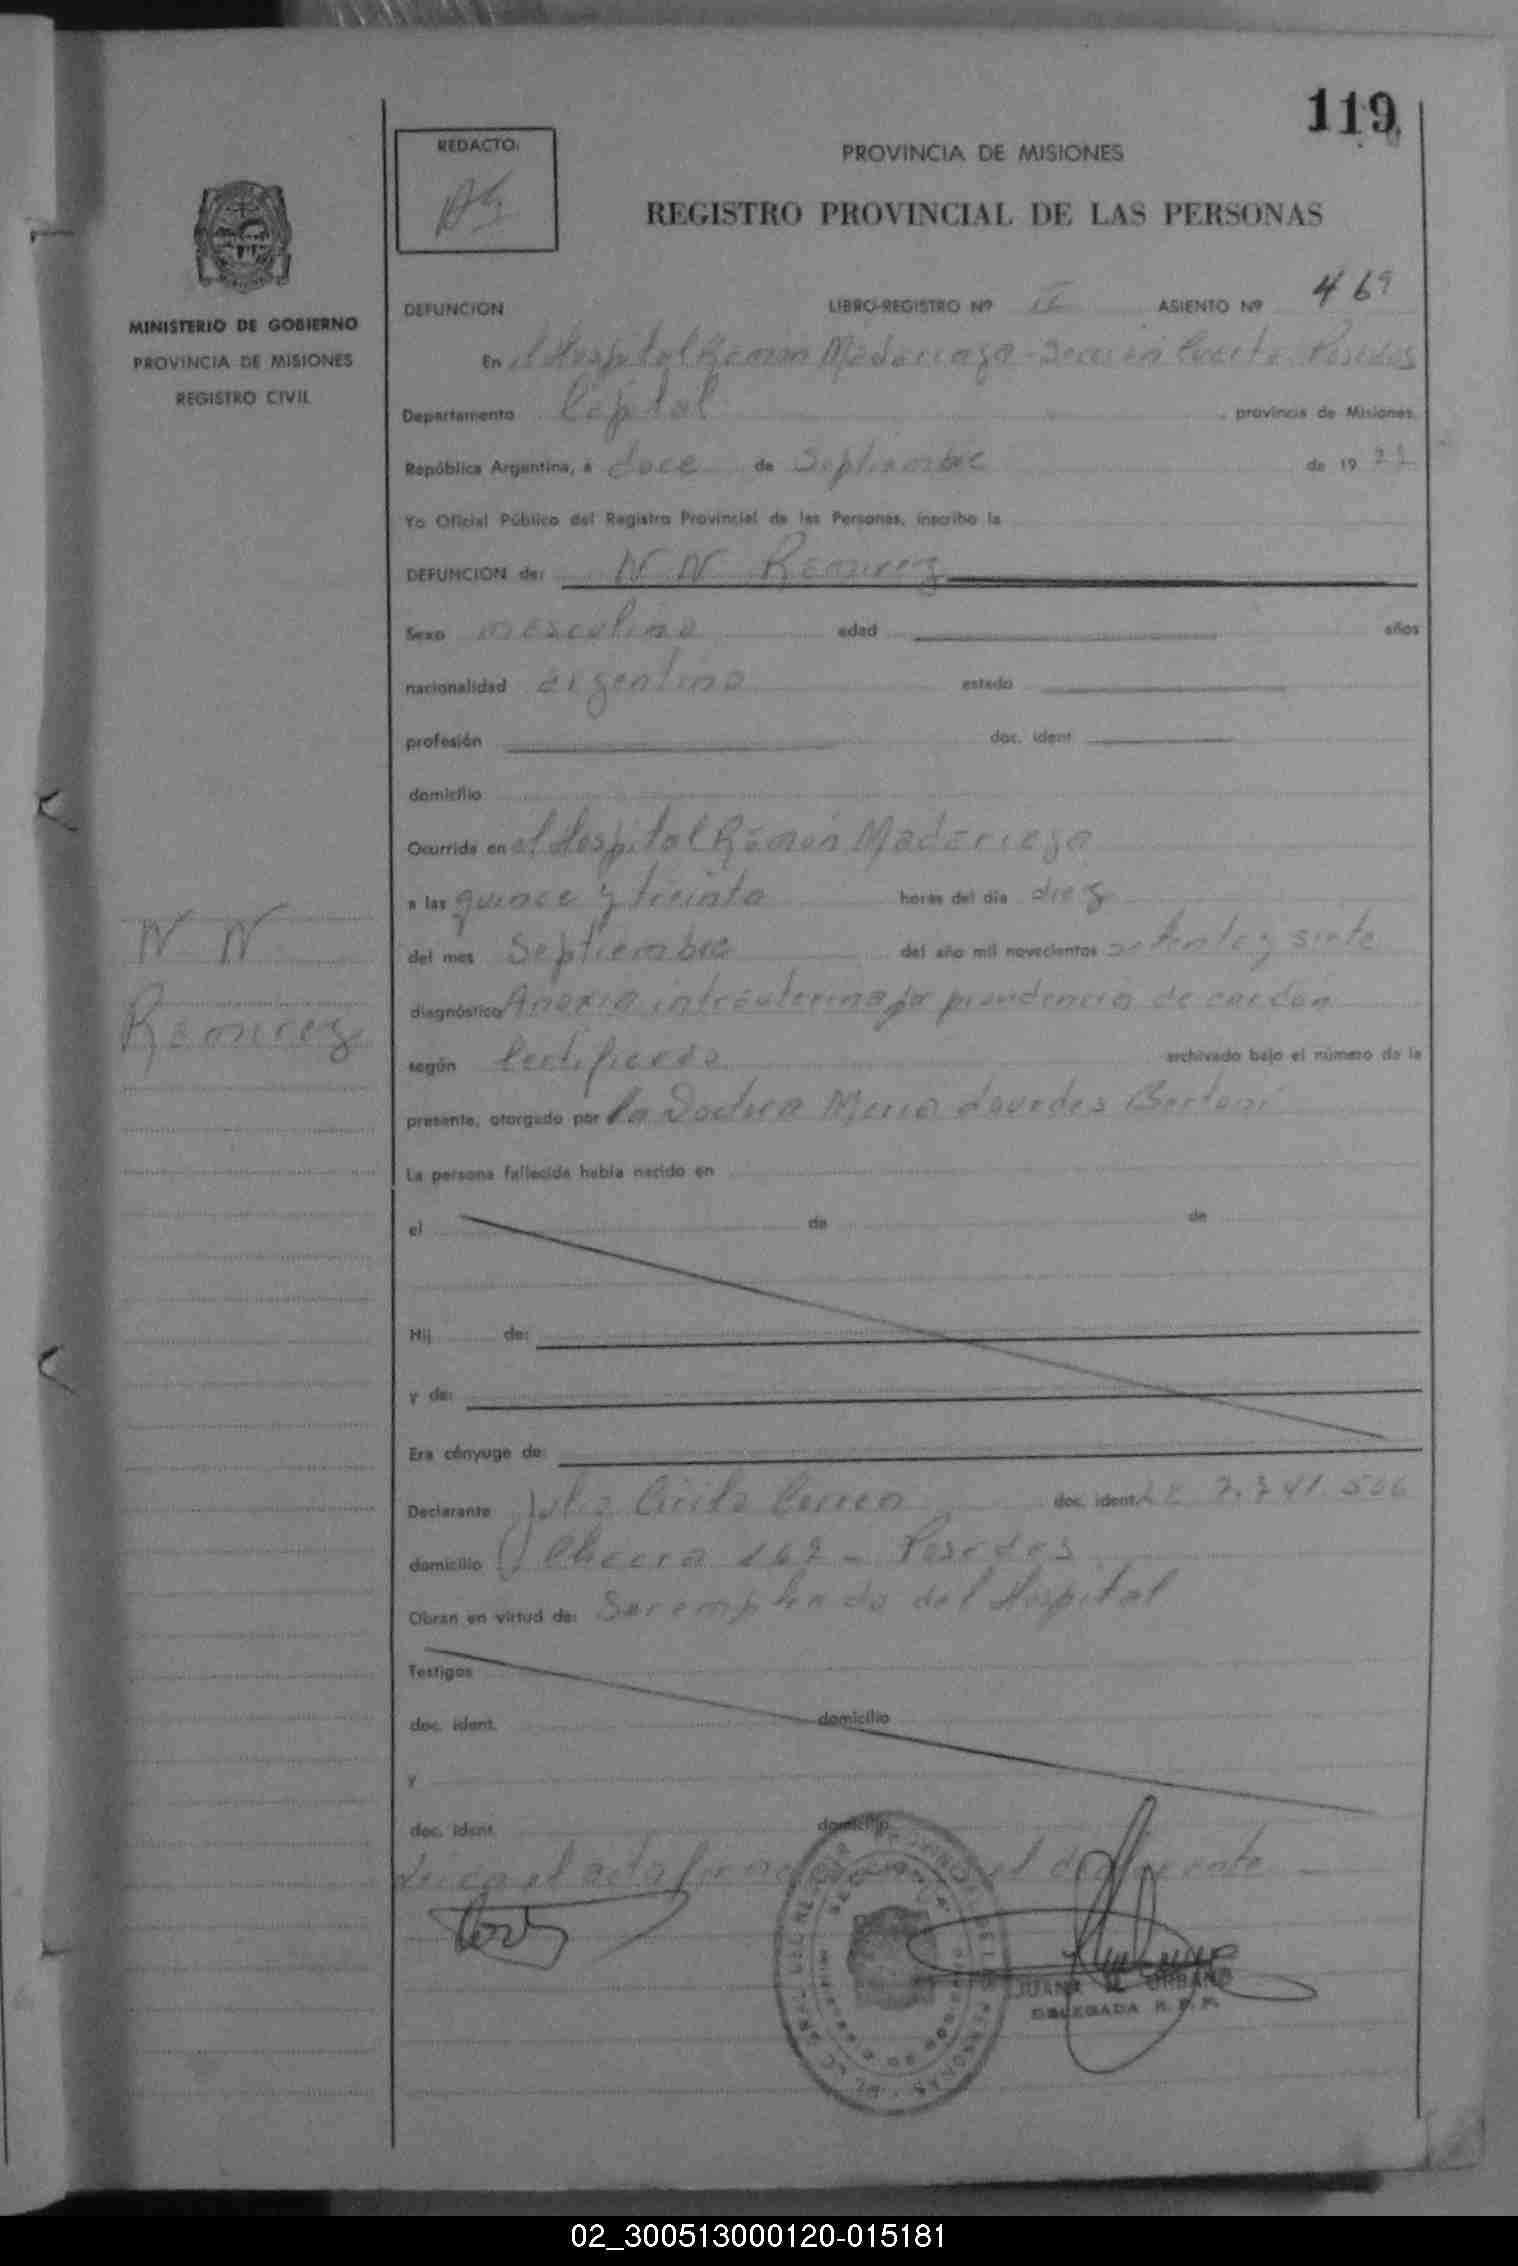 119
REDACTO:
PROVINCIA DE MISIONES
REGISTRO PROVINCIAL DE LAS PERSONAS
MINISTERIO DE GOBIERNO
PROVINCIA DE MISIONES
REGISTRO CIVIL
DEFUNCION LIBRO-REGISTRO Nº II ASIENTO Nº 469
En el Hospital Ramón Madariaga - Sección Cuarta Posadas
Departamento Capital, provincia de Misiones.
República Argentina, a doce de Septiembre de 19 77
Yo Oficial Público del Registro Provincial de las Personas, inscribo la
DEFUNCION de: N N Ramirez
Sexo masculino edad años
nacionalidad argentina estado
profesión doc. ident.
domicilio
Ocurrida en el Hospital Ramón Madariaga
a las quince y treinta horas del día diez
del mes Septiembre del año mil novecientos setenta y siete
N N
Ramirez
diagnóstico Anoxia intrauterina por prondencia de cordón
según Certificado archivado bajo el número de la
presente, otorgado por la Doctora Maria Lourdes Bertoni
La persona fallecida había nacido en
el de de
Hij de:
y de:
Era cónyuge de:
Declarante doc. ident. LE 7.541.506
domicilio 162 - Posadas
Obran en virtud de: Ser empleado del Hospital
Testigos
doc. ident. domicilio
y
doc. ident. domicilio
el acta el
JUANA URBANO
DELEGADA R. P. P.
02_300513000120-015181